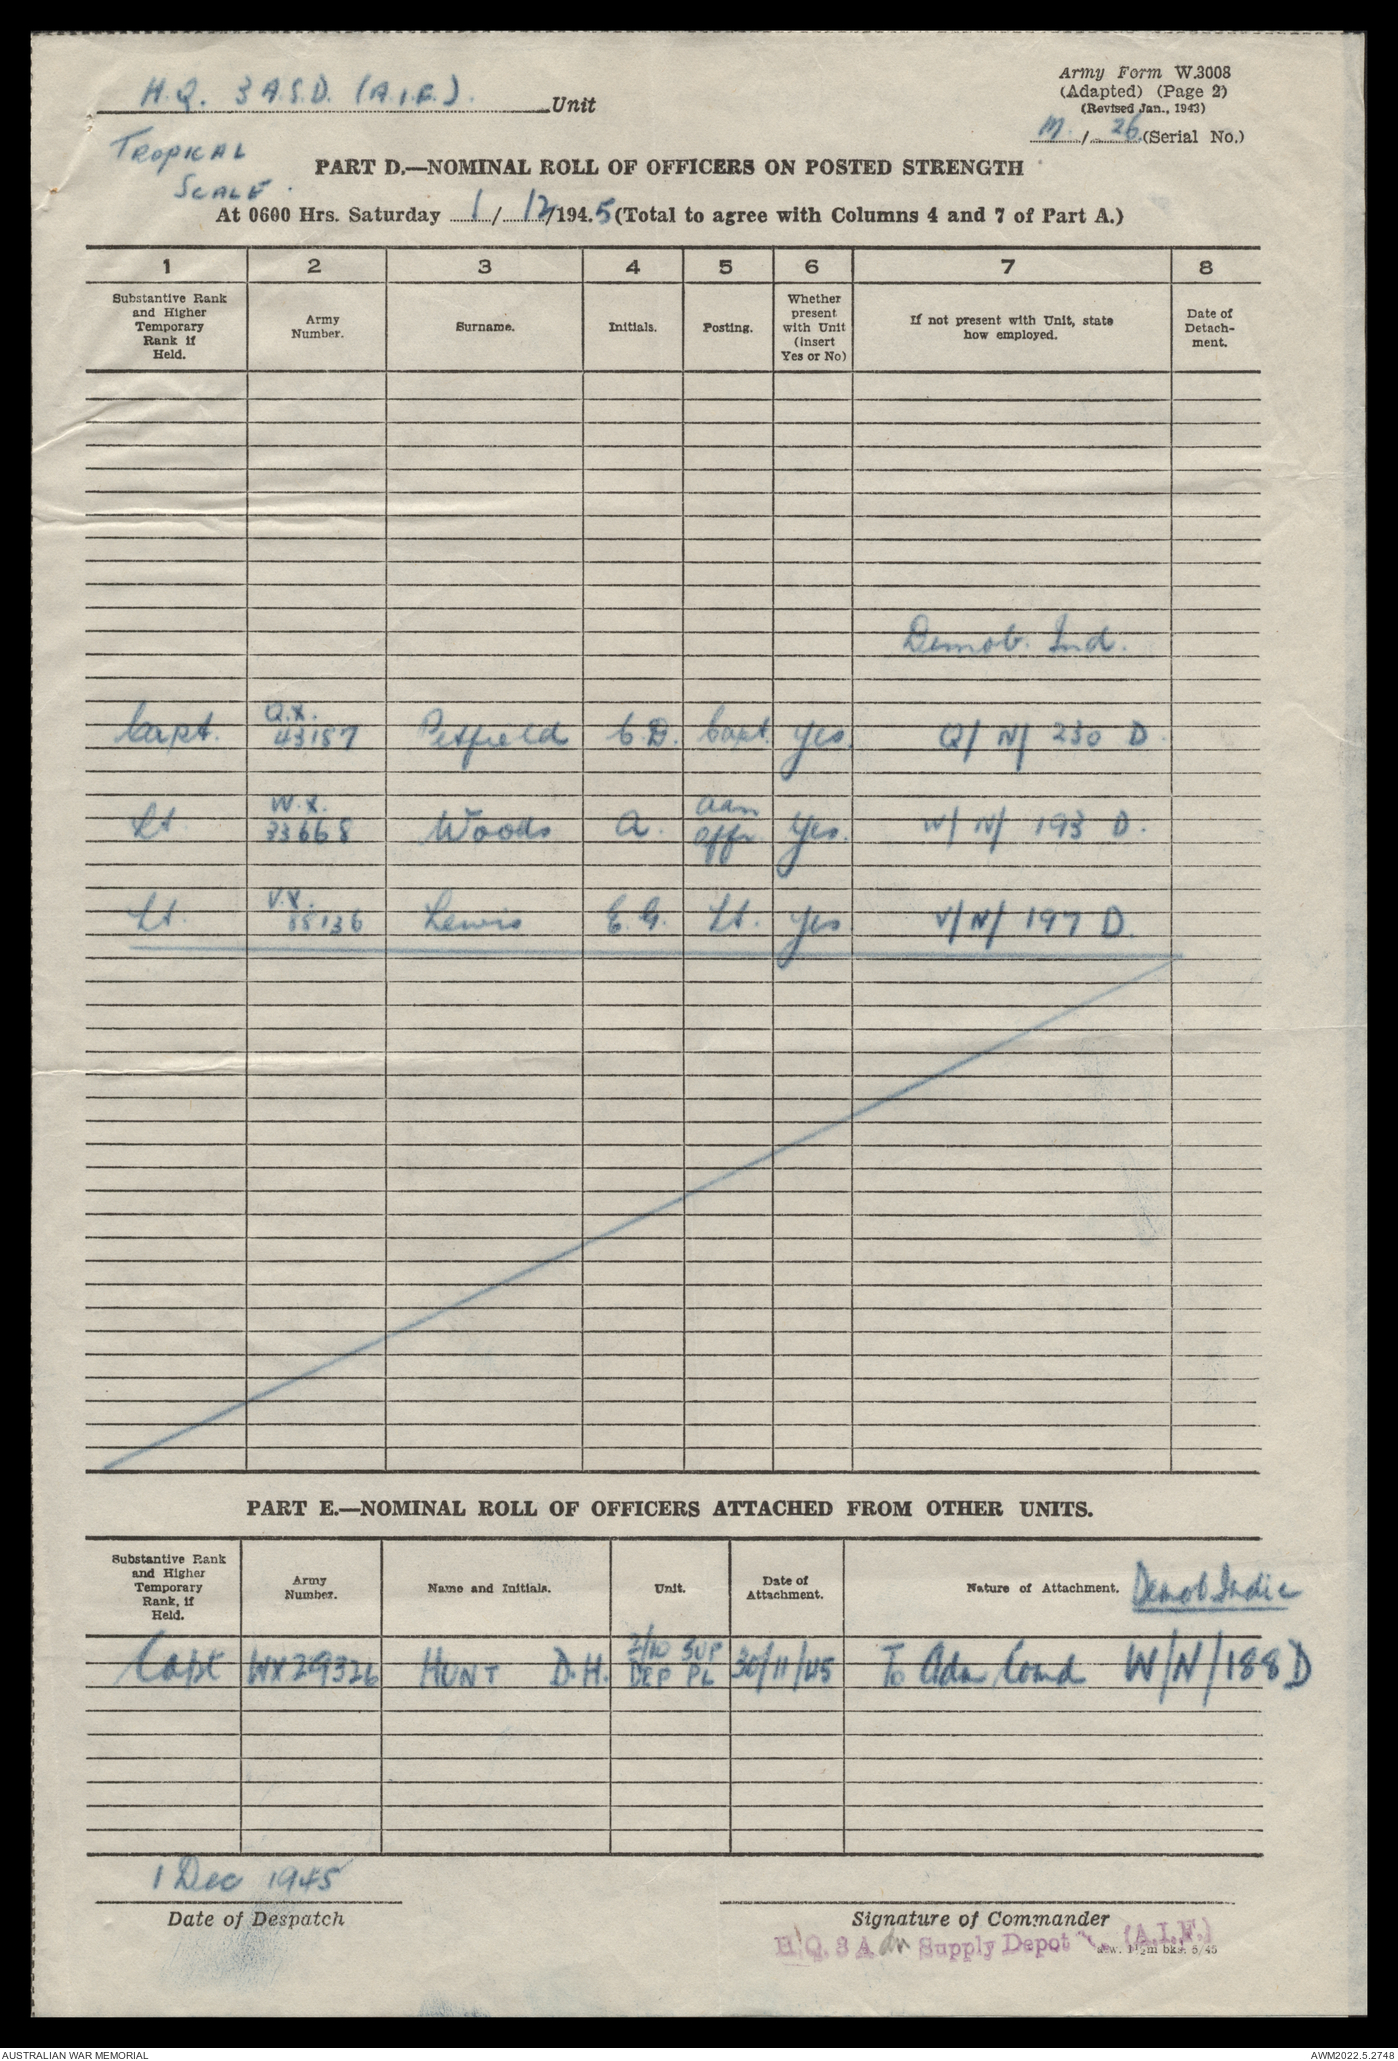 H.Q. 3 A.S.D. (A.I.F.). Unit
Army Form W.3008
(Adapted) (Page 2)
(Revised Jan., 1943)
M / 26 (Serial No.)
TROPICAL
SCALE.
PART D.—NOMINAL ROLL OF OFFICERS ON POSTED STRENGTH
At 0600 Hrs. Saturday 1 / 12/1945 (Total to agree with Columns 4 and 7 of Part A.)
1 2 3 4 5 6 7 8
Substantive Rank
and Higher
Temporary
Rank if
Held.
Army
Number.
Surname.
Initials.
Posting.
Whether
present
with Unit
(insert
Yes or No)
If not present with Unit, state
how employed.
Date of
Detach-
ment.
Demob. Ind.
Capt. Q.X. 43187 Petfield C.D. Capt. Yes. Q/ N/ 230 D.
Lt. W.X. 33668 Woods A. Adm Offr. Yes. W/ N/ 193 D.
Lt. V.X. 88136 Lewis E.G. Lt. Yes V/ N/ 197 D.
PART E.—NOMINAL ROLL OF OFFICERS ATTACHED FROM OTHER UNITS.
Substantive Rank
and Higher
Temporary
Rank, if
Held.
Army
Number.
Name and Initials.
Unit.
Date of
Attachment.
Nature of Attachment. Demob Indic
Capt WX29326 HUNT D.H. 2/10 SUP DEP PL 30/11/45 To Adm Comd W/N/188 D
1 Dec 1945
Date of Despatch
Signature of Commander
H.Q. 3 A Supply Depot (A.I.F.)
bks. 5/45
AUSTRALIAN WAR MEMORIAL
AWM2022.5.2748